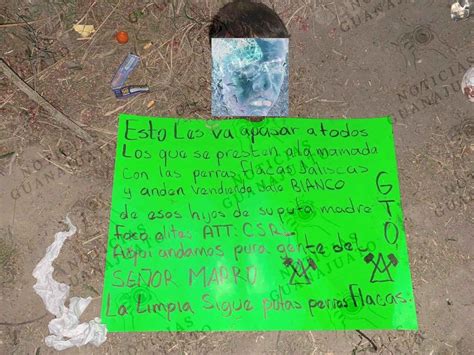 Esto Les va apasar a todos
Los que se presten ala mamada
con las perras flacas Jaliscas
y anden vendiendo BIANCO
de esos hijos de su puta madre
ATT: C.S.R.L
Aqui andamos pura gente del
SEÑOR MARRO
La Limpia Sigue putas perras flacas.
GTO
NOTICIAS
GUANAJUATO